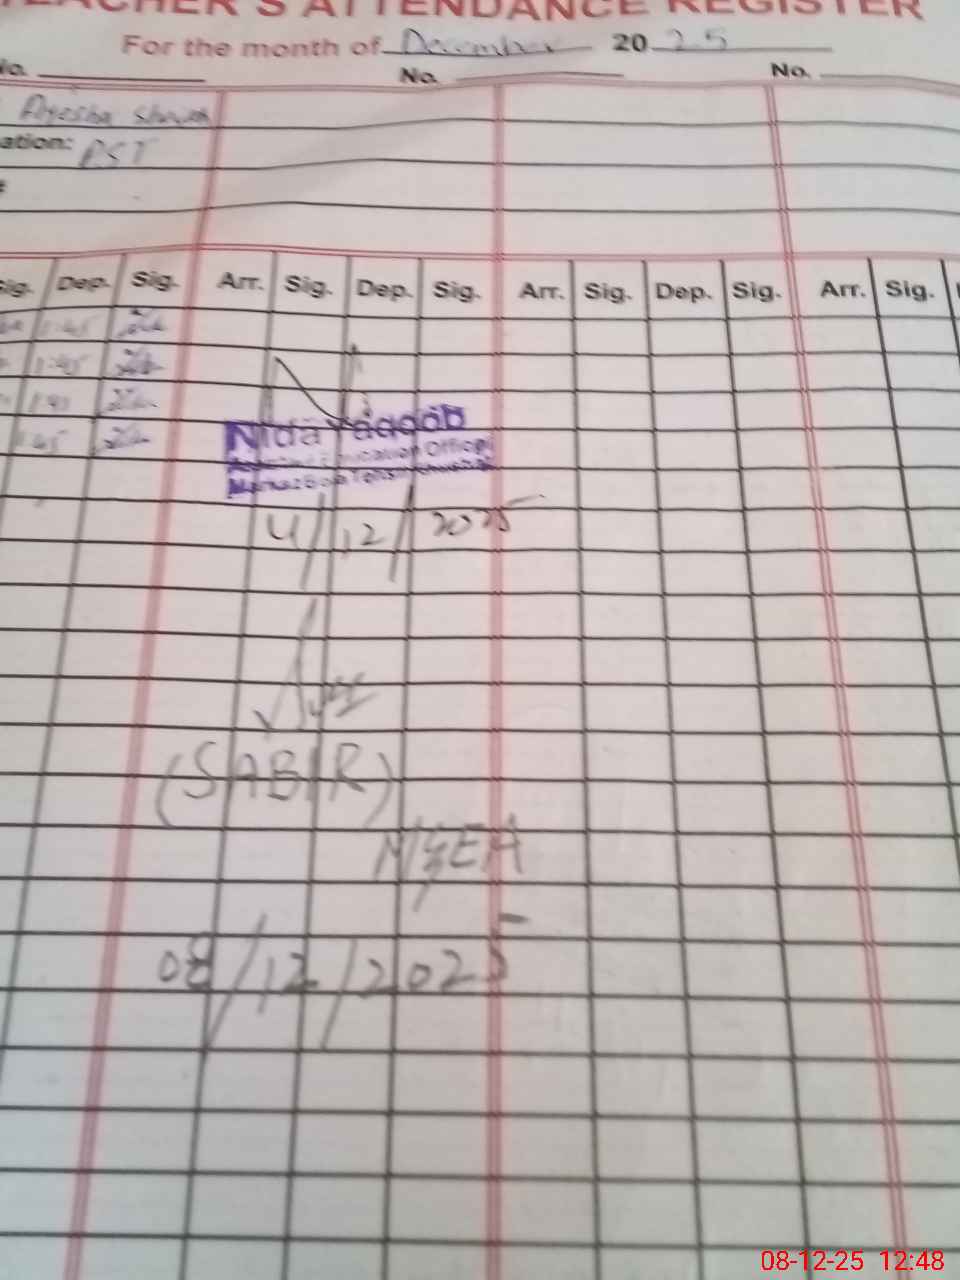 TEACHER'S ATTENDANCE REGISTER
For the month of December 2025
No. No. No.
Ayesha
ation: PST
Sig. Dep. Sig. Arr. Sig. Dep. Sig. Arr. Sig. Dep. Sig. Arr. Sig.
1:45
1:45
1:45
Nida Yaqoob
Education Officer
Markaz
4/12/2025
(SABIR)
08/12/2025
08-12-25 12:48